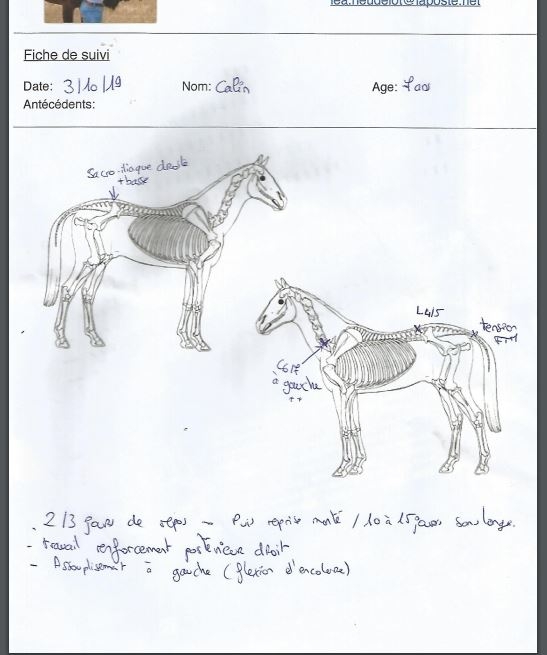 lea.heudelot@laposte.net
Fiche de suivi
Date: 3/10/19 Nom: Calin Age: 7 ans
Antécédents:
Sacro-iliaque droite
+ basse
L4/5
tension
C6/7
à gauche
++
. 2/3 jours de repos → Puis reprise monté / 10 à 15 jours sans longe.
- travail renforcement postérieur droit
- Assouplissement à gauche (flexion d'encolure)